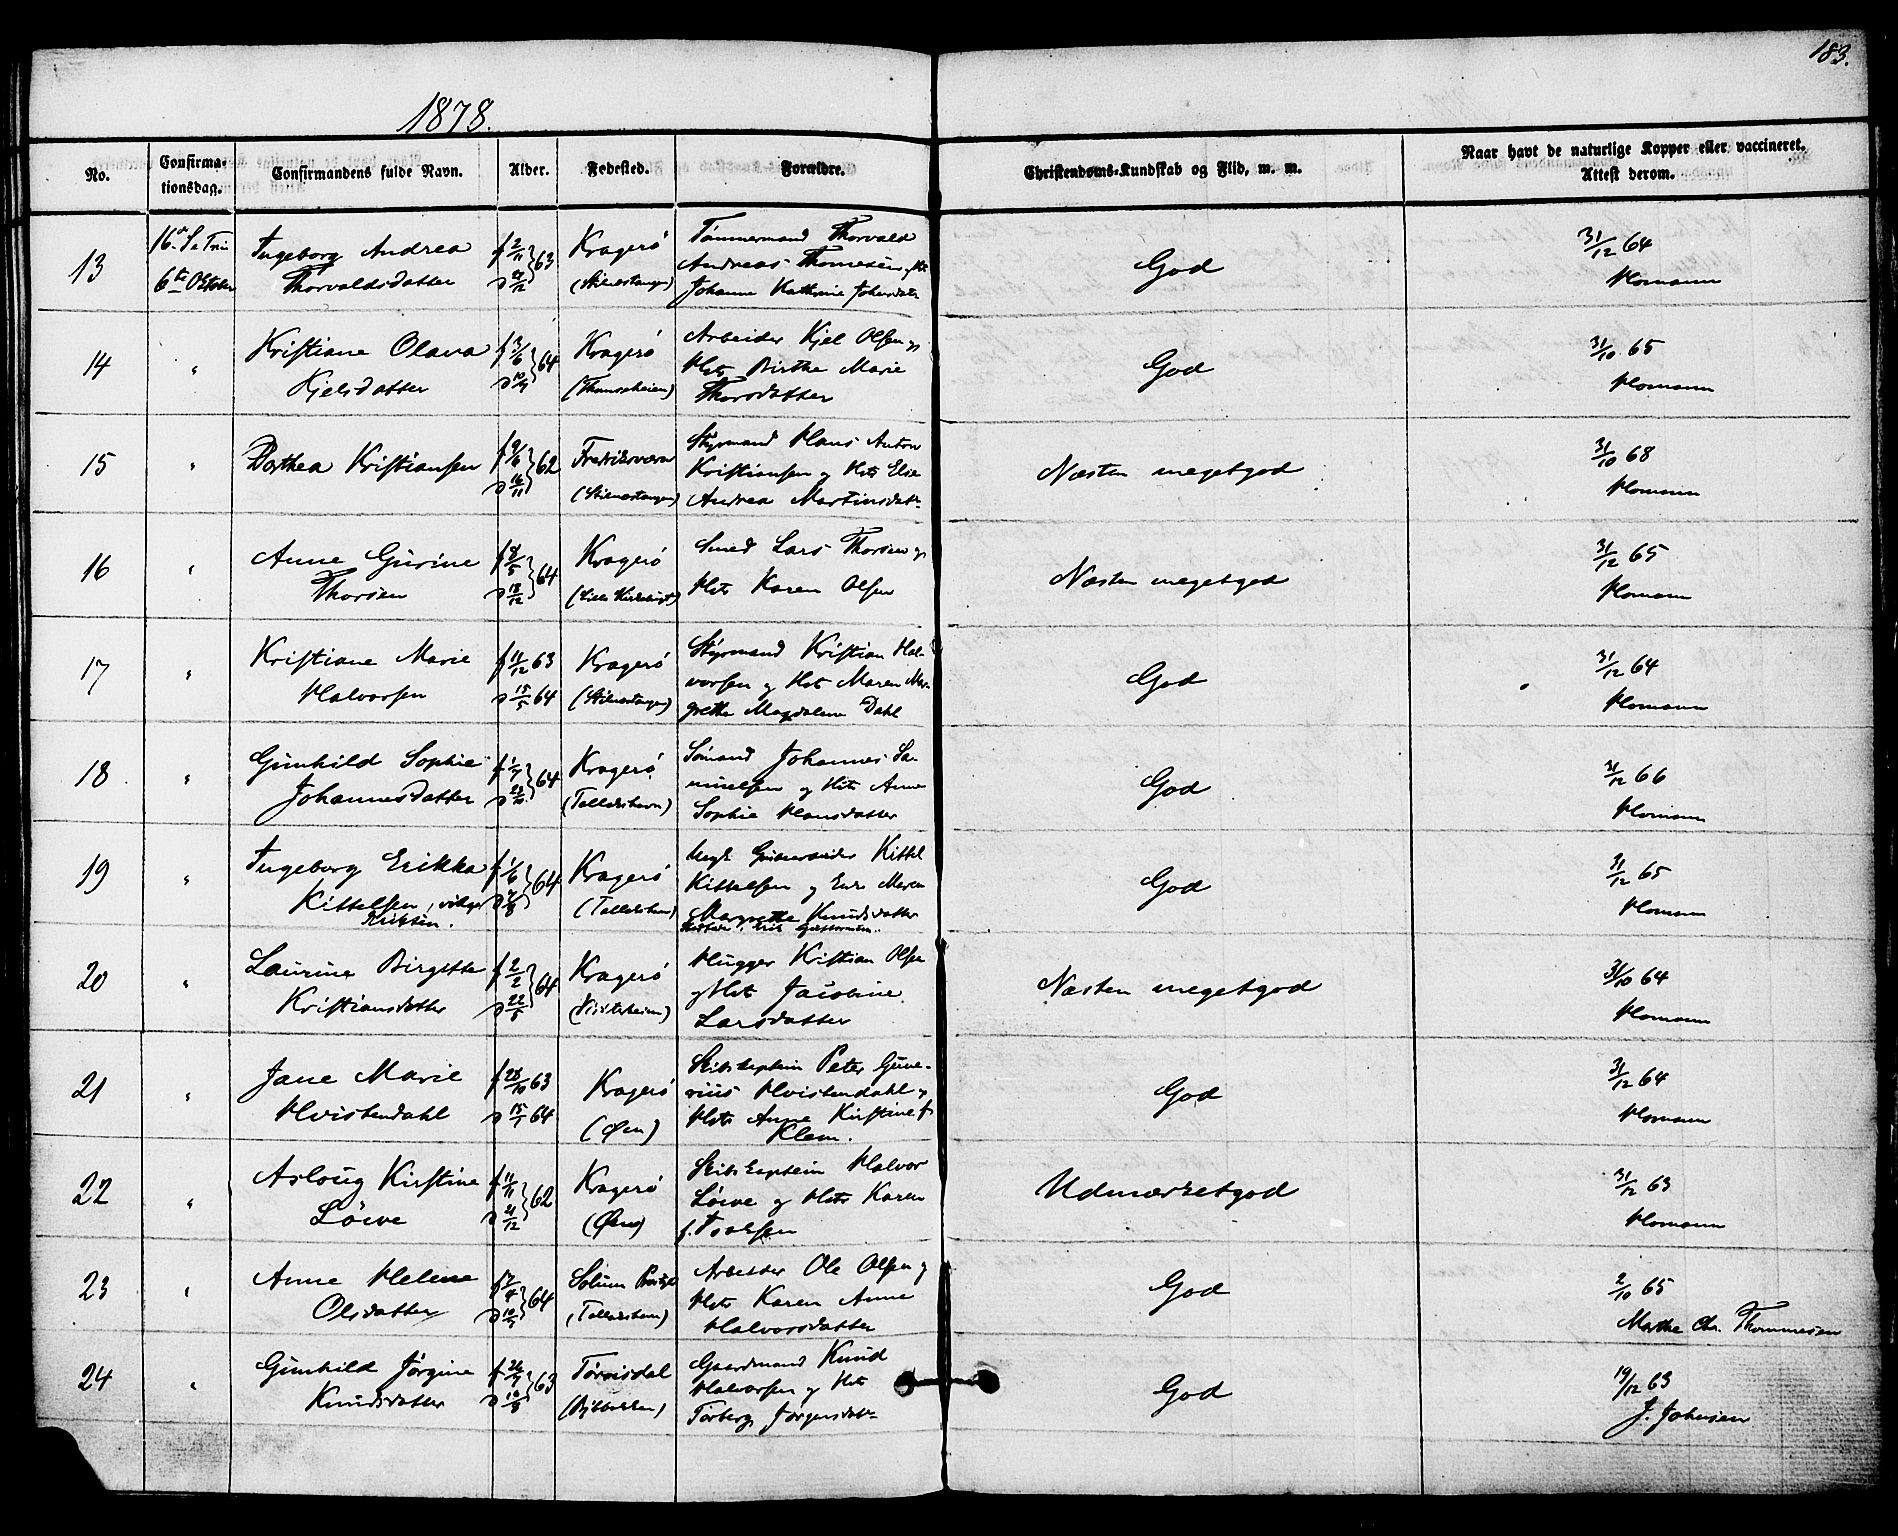 183.
1878.
No.
Confirma-
tionsdag.
Confirmandens fulde Navn.
Alder.
Fødested.
Forældre.
Christendoms-Kundskab og Flid, m. m.
Naar havt de naturlige Kopper eller vaccineret.
Attest derom.
13
16de S. e Trin
6te Oktober
Ingeborg Andrea
Thorvaldsdatter
f 2/11 63
Kragerö
(Stilnestangen)
Tömmermand Thorvald
Andreas Thomesen og
Johanne Kathrine Johnsdatr
God
31/12 64
Homann
14
"
Kristiane Olava
Kjelsdatter
f 3/6 64
d 10/7
Kragerö
Arbeider Kjel Olsen og
Hst Birthe Marie
Thorsdatter
God
31/10 65
Homann
15
"
Dorthea Kristiansen
f 9/6 62
d 16/11
Fredriksværn
(Stilnestangen)
Styrmand Hans Anton
Kristiansen og Hst Elise
Andrea Martinsdatr
Næsten megetgod
31/10 68
Homann
16
"
Anne Gurine
Thorsen
f 8/5 64
d 18/12
Kragerö
Smed Lars Thorsen og
Hst Karen Olsen
Næsten megetgod
31/12 65
Homann
17
"
Kristiane Marie
Halvorsen
f 11/12 63
d 15/5 64
Kragerö
(Stilnestangen)
Styrmand Kristian Hal-
vorsen og Hst Maren Mar-
grethe Magdalene Dahl
God
31/12 64
Homann
18
"
Gunhild Sophie
Johannesdatter
f 1/7 64
Kragerö
(Tallakshavn)
Sömand Johannes Sa-
muelsen og Hst Anne
Sophie Hansdatter
God
31/12 66
Homann
19
"
Ingeborg Erikka
Kittelsen,
Eriksen.
f 1/6 64
Kragerö
Kittel
Kittelsen og Maren
Margrethe Knudsdatter
God
31/12 65
Homann
20
"
Laurine Birgitte
Kristiansdatter
f 2/2 64
d 22/5
Kragerö
Hugger Kristian Olsen
og Hst Jacobine
Larsdatter
Næsten megetgod
31/10 64
Homann
21
"
Jane Marie
Hvistendahl
f 28/10 63
d 15/1 64
Kragerö
(Øen)
Skibskaptein Peter Gune-
rius Hvistendahl og
Hst Anne Kirstine f.
Klem.
God
31/12 64
Homann
22
"
Aslaug Kirstine
Löwe
f 11/11 62
d 21/12
Kragerö
(Øen)
Skibskaptein Halvor
Löwe og Hst Karen
f. Isaksen
Udmærketgod
31/12 63
Homann
23
"
Anne Helene
Olsdatter
64
Solum Præstgd
Arbeider Ole Olsen og
Hst Karen Anne
Halvorsdatter
God
2/10 65
Marthe Chr. Thommesen
24
"
Gunhild Jörgine
Knudsdatter
f 26/7 63
Törrisdal
Gaardmand Knud
Halvorsen og Hst
Torberg Jörgensdatr
God
19/12 63
J. Johnsen